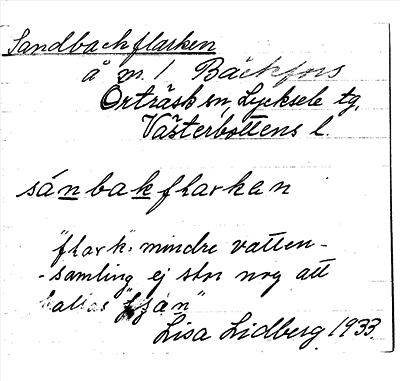 Sandbackflarken
å m. / Bäckfors
Örträsk sn, Lycksele tg,
Västerbottens l.
sánbakflarkan
"flark": mindre vatten-
-samling ej stor nog att
kallas "tján"
Lisa Lidberg 1933.